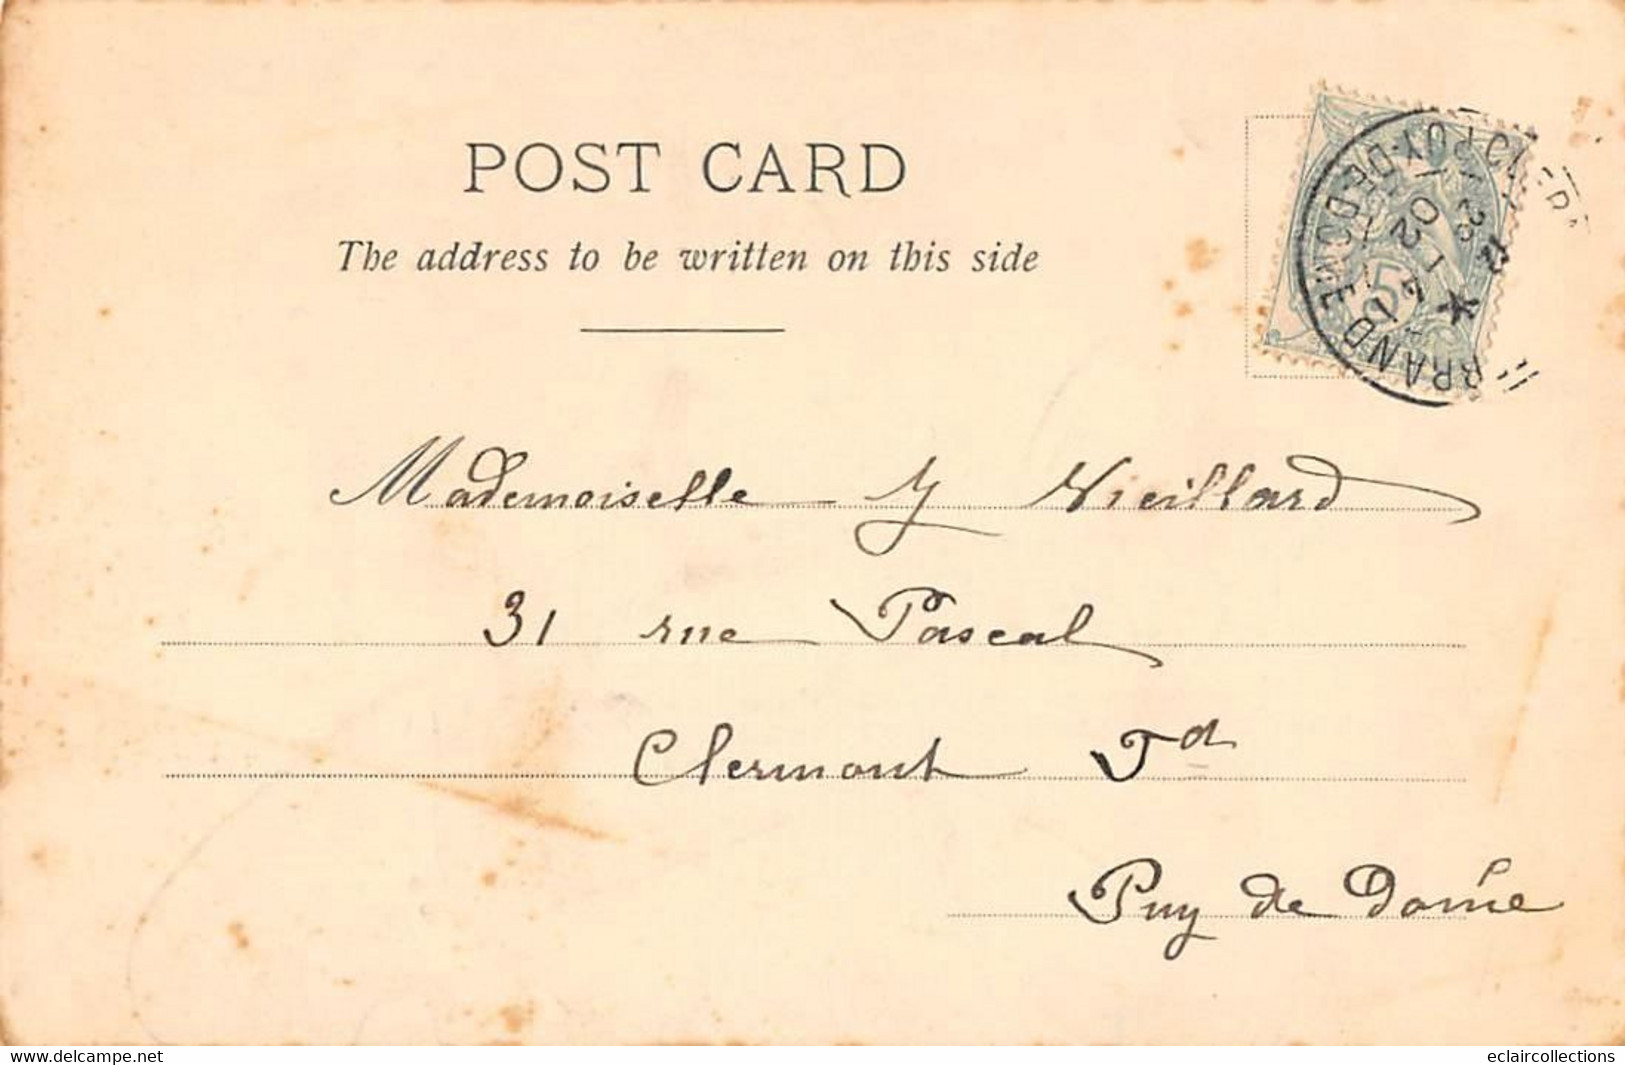 POST CARD
The address to be written on this side
5
PUY-DE-DOME
02
Mademoiselle Y Vieillard
31 rue Pascal
Clermont Fd
Puy de Dome
www.delcampe.net
eclaircollections